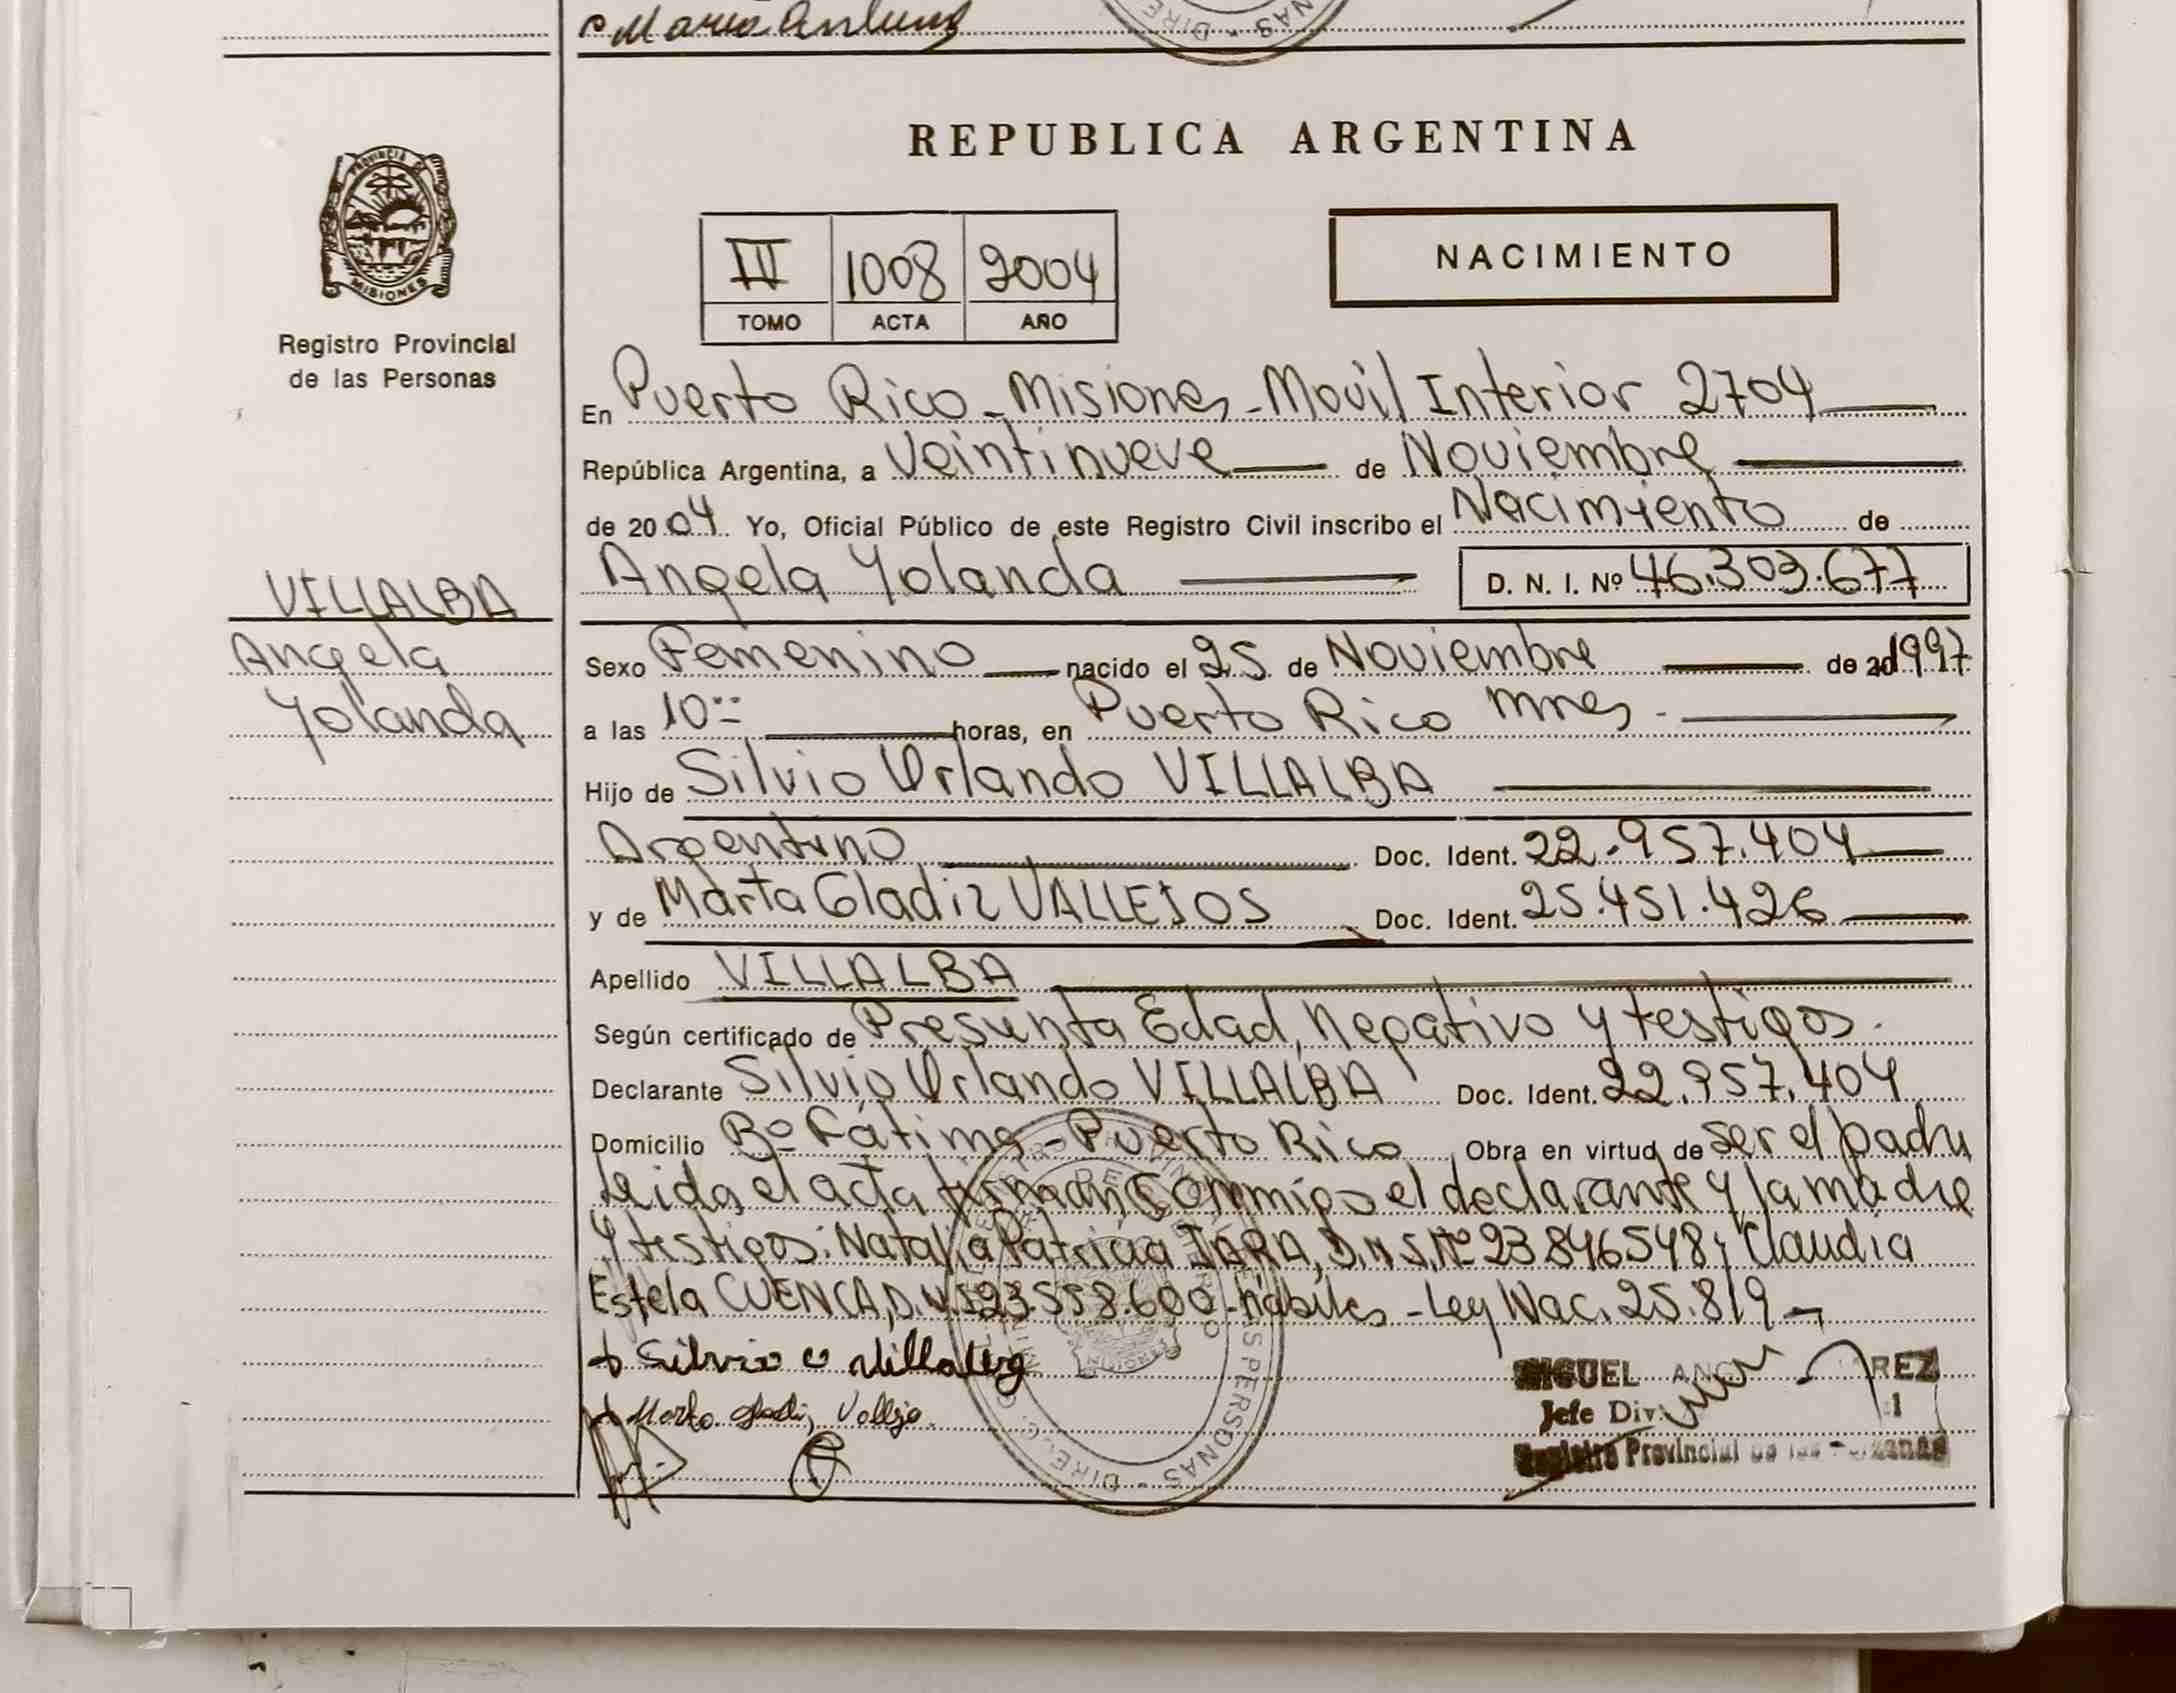 Maria
REPUBLICA ARGENTINA
PROVINCIA DE
MISIONES
Registro Provincial
de las Personas
III 1008 2004
TOMO ACTA AÑO
NACIMIENTO
En Puerto Rico - Misiones - Movil Interior 2704
República Argentina, a Veintinueve de Noviembre
de 2004 Yo, Oficial Público de este Registro Civil inscribo el Nacimiento de
VILLALBA
Angela
Yolanda
Angela Yolanda D. N. I. Nº 46.303.677
Sexo Femenino nacido el 25 de Noviembre de 20 1997
a las 10 horas, en Puerto Rico Mnes.
Hijo de Silvio Orlando VILLALBA
Argentino Doc. Ident. 22.957.404
y de Marta Gladiz VALLEJOS Doc. Ident. 25.451.426
Apellido VILLALBA
Según certificado de Presunta Edad, Negativo y testigos.
Declarante Silvio Orlando VILLALBA Doc. Ident. 22.957.404
Domicilio Bº Fátima - Puerto Rico Obra en virtud de ser el padre
leida el acta firman conmigo el declarante y la madre
y testigos: Natalia Patricia JARA, D.N.I.Nº 23846548 y Claudia
Estela CUENCA, D.N.I 23.558.600 - hábiles - Ley Nac. 25.819
Silvio O Villalba
Marta Gladiz Vallejo
MIGUEL
Jefe Div.
Registro Provincial de las